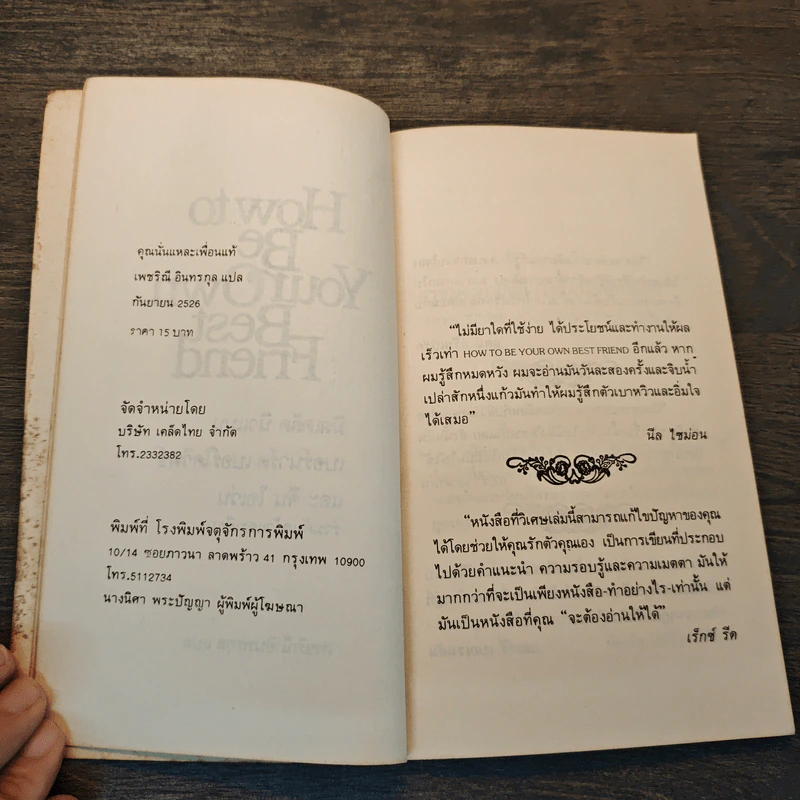 คุณนั่นแหละเพื่อนแท้
เพชริณี อินทรกุล แปล
กันยายน 2526
ราคา 15 บาท
จัดจำหน่ายโดย
บริษัท เคล็ดไทย จำกัด
โทร.2332382
พิมพ์ที่ โรงพิมพ์จตุจักรการพิมพ์
10/14 ซอยภาวนา ลาดพร้าว 41 กรุงเทพ 10900
โทร.5112734
นางนิศา พระปัญญา ผู้พิมพ์ผู้โฆษณา
How to
Be
Your Own
Best
Friend
“ไม่มียาใดที่ใช้ง่าย ได้ประโยชน์และทำงานให้ผล
เร็วเท่า HOW TO BE YOUR OWN BEST FRIEND อีกแล้ว หาก
ผมรู้สึกหมดหวัง ผมจะอ่านมันวันละสองครั้งและจิบน้ำ
เปล่าสักหนึ่งแก้วมันทำให้ผมรู้สึกตัวเบาหวิวและอิ่มใจ
ได้เสมอ”
นีล ไซม่อน
“หนังสือที่วิเศษเล่มนี้สามารถแก้ไขปัญหาของคุณ
ได้โดยช่วยให้คุณรักตัวคุณเอง เป็นการเขียนที่ประกอบ
ไปด้วยคำแนะนำ ความรอบรู้และความเมตตา มันให้
มากกว่าที่จะเป็นเพียงหนังสือ-ทำอย่างไร-เท่านั้น แต่
มันเป็นหนังสือที่คุณ “จะต้องอ่านให้ได้”
เร็กซ์ รีด